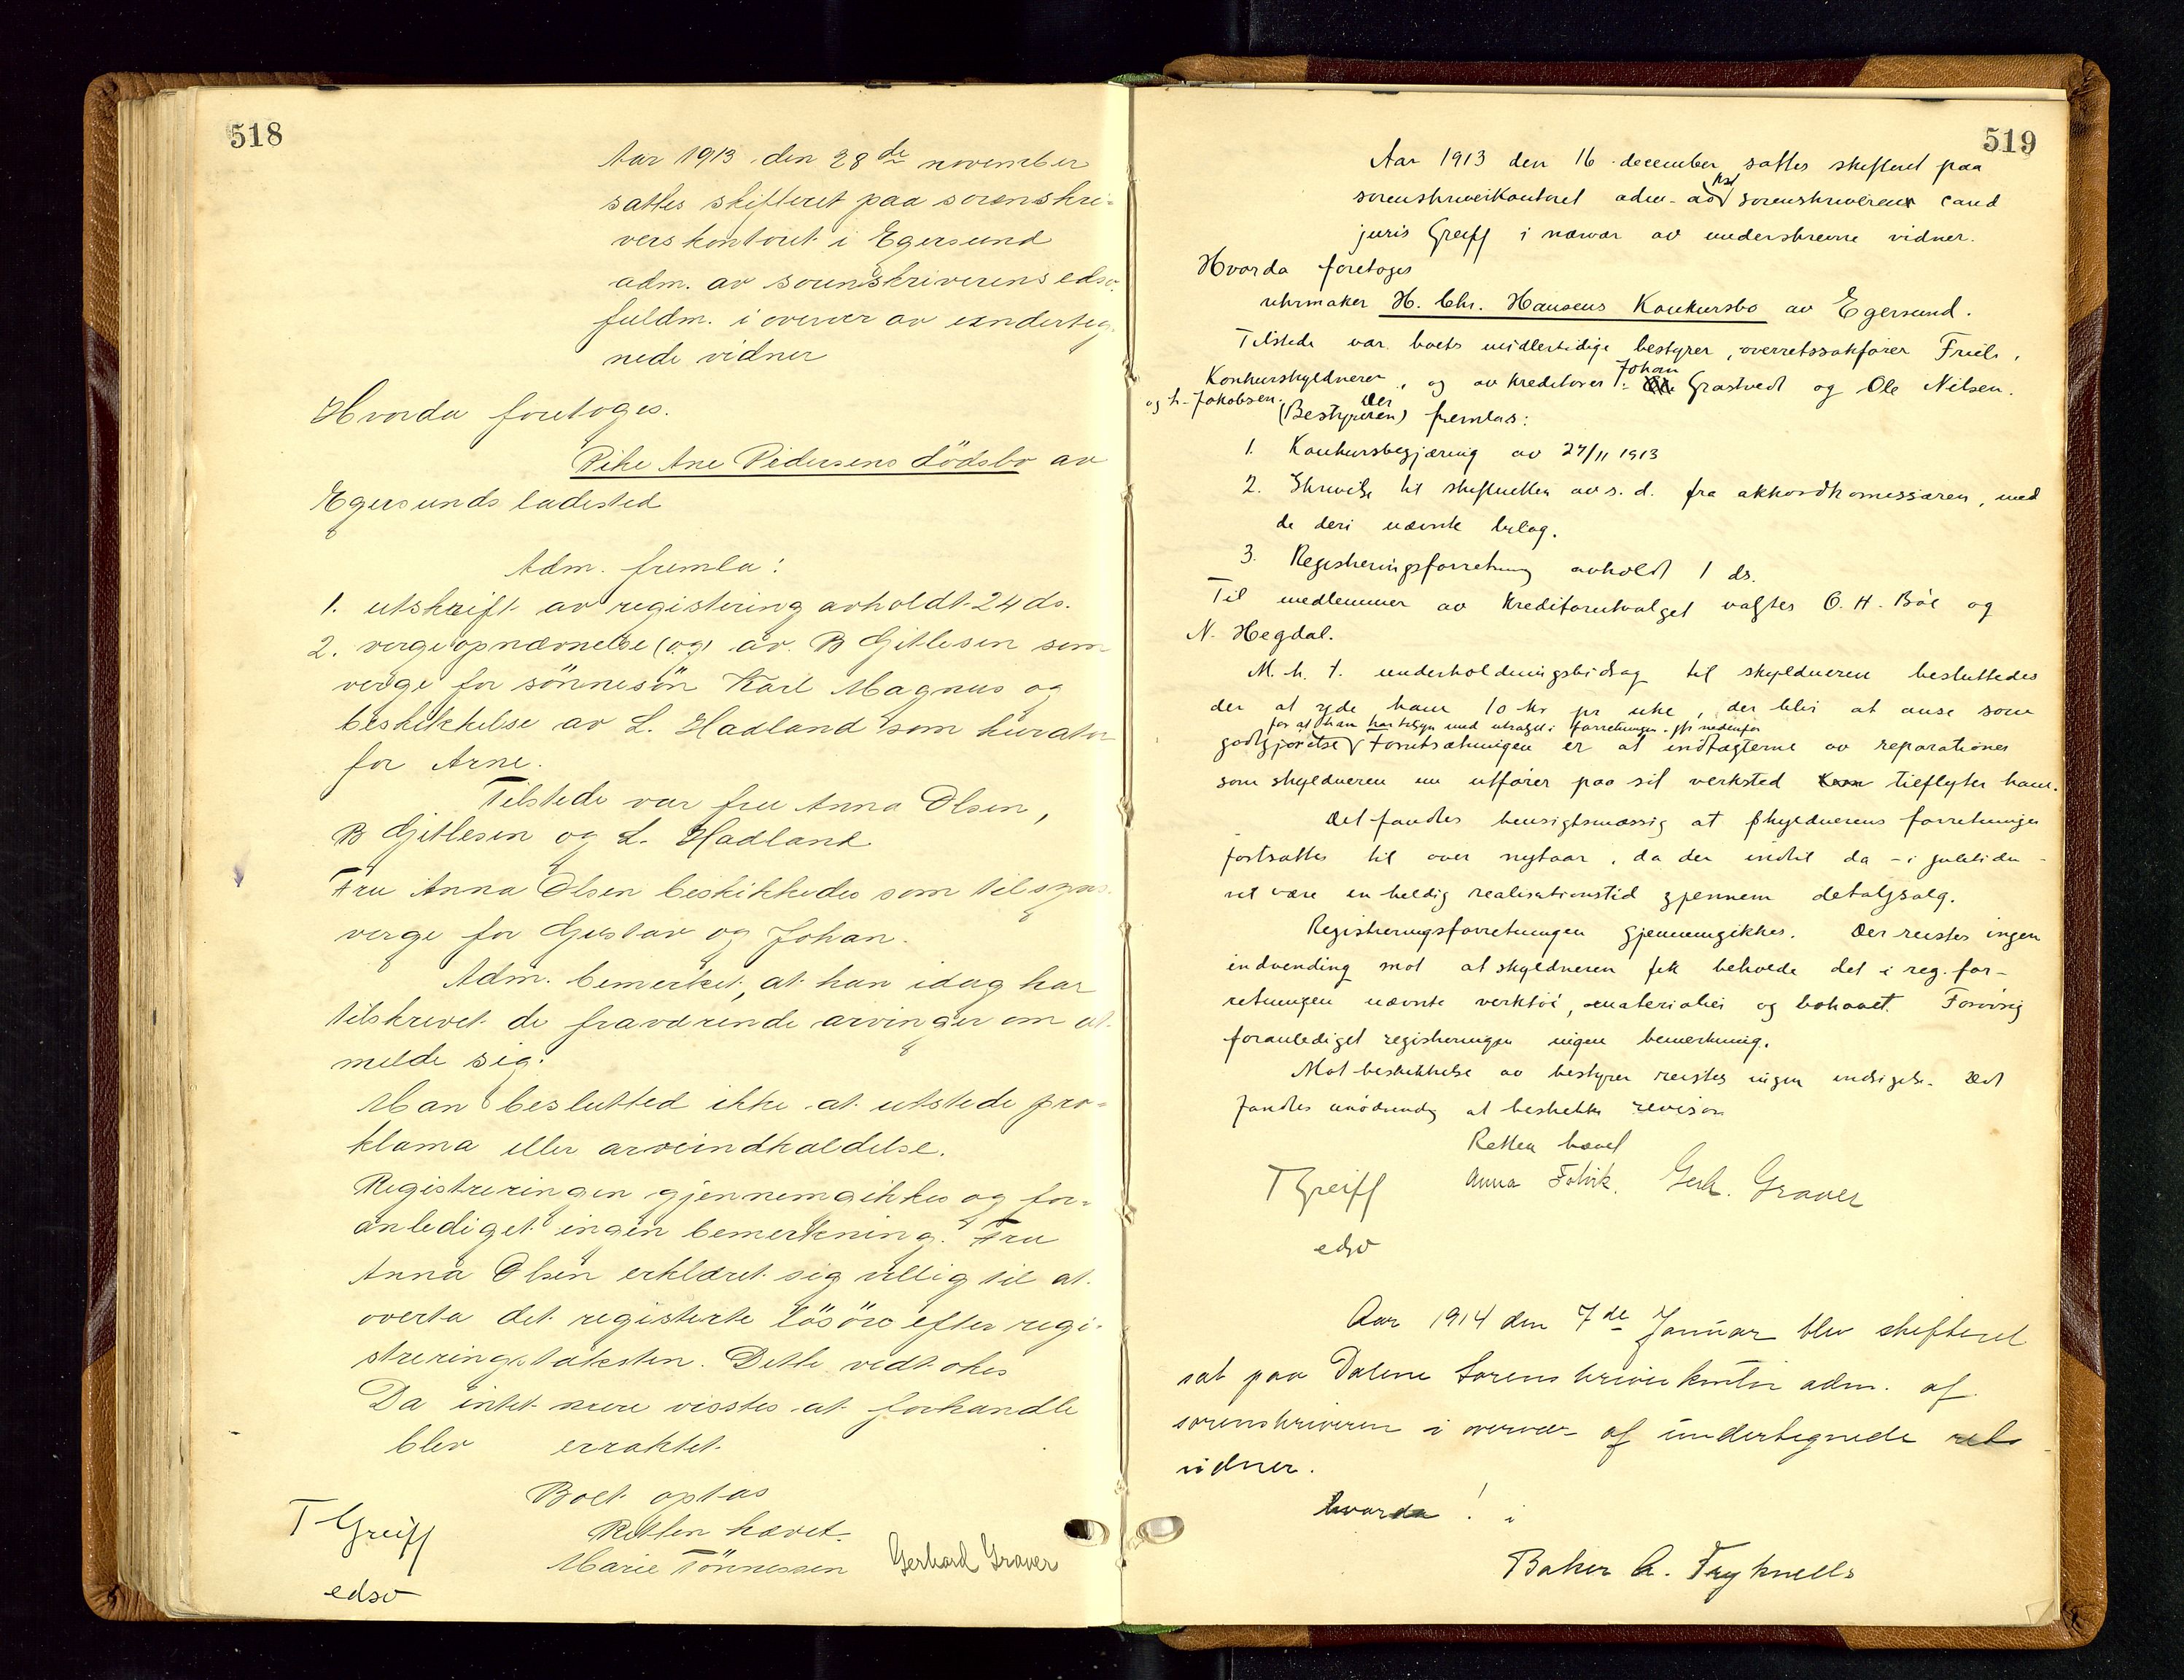 518
Aar 1913 den 28de november
sattes skifteret paa sorenskri-
verskontoret i Egersund
adm. av sorenskriverens edsv.
fuldm. i overvær av underteg-
nede vidner
Hvorda foretoges.
Pike Ane Pedersens dödsbo av
Egersunds ladested
Adm. fremla:
1. utskrift av registering avholdt 24 ds.
2. vergeopnævnelse (og) av B Gitlesen som
verge for sönnesön Karl Magnus og
beskikkelse av L. Hadland som kurator
for Arne.
Tilstede var fru Anna Olsen,
B Gitlesen og L. Hadland
Fru Anna Olsen beskikkedes som tilsyns
verge for Gustav og Johan.
Adm. bemerket, at han idag har
tilskrevet de fraværende arvinger om at
melde sig.
Man beslutted ikke at utstede pro-
klama eller arveindkaldelse.
Registreringen gjennemgikkes og for-
anlediget ingen bemerkning. Fru
Anna Olsen erklæret sig villig til at
overta det registerte lösöre efter regi-
streringstaksten. Dette vedtokes
Da intet mere visstes at forhandle
blev erraktet
Boet optas
Retten hævet.
T Greiff
edsv
Marie Tönnessen
Gerhard Graver
519
Aar 1913 den 16 december sattes skifteret paa
sorenskriverkontoret adm. av sorenskriverens cand
juris Greiff i nærvær av underskrevne vidner.
Hvorda foretoges
uhrmaker H. Chr. Hansens Konkursbo av Egersund.
Tilstede var boets midlertidige bestyrer, overretssakfører Friele,
Konkursskyldneren, og av kreditorer: Johan Grastvedt og Ole Nilsen.
og L. Jakobsen.
Der
(Bestyreren) fremlas:
1. Konkursbegjæring av 27/11 1913
2. Skrivelse til skifteretten av s.d. fra akkordkomissæren, med
de deri nævnte bilag.
3. Registreringsforretning avholdt 1 ds.
Til medlemmer av kreditorutvalget valgtes O. H. Böe og
N. Hegdal.
M. h. t. underholdningsbidrag til skyldneren besluttedes
der at yde ham 10 kr pr uke, der blir at anse som
for at han har tilsyn med utsalget i forretningen. jfr nedenfor
godtgjørelse Forutsætningen er at indtægterne av reparationer
som skyldneren nu utfører paa sit verksted tilflyter ham.
Det fandtes hensigtsmæssig at skyldnerens forretninger
fortsattes til over nytaar, da der indtil da - i juletiden -
vil være en heldig realisationstid gjennem detaljsalg.
Registreringsforretningen gjennemgikkes. Der reistes ingen
indvending mot at skyldneren fik beholde det i reg. for-
retningen nævnte verktöi, materialier og bohavet. Forøvrig
foranlediget registreringen ingen bemerkning.
Mot beskikkelse av bestyrer reistes ingen indsigelse. Det
fandtes unødvendig at beskikke revisor
Retten hævet
T Greiff
edsv
Anna Folvik. Gerh. Graver
Aar 1914 den 7de Januar blev skifteret
sat paa Dalene Sorenskriverkontor adm. af
sorenskriveren i overvær af undertegnede rets
vidner.
hvorda ! i
Baker A. Tryknells